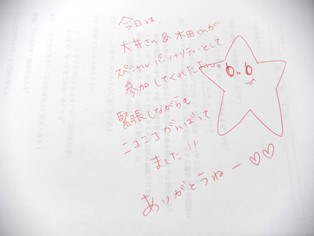 今日は
大井さん&本田さんが
スペシャルパーソナリティーとして
参加してくれたよん。
緊張しながらも
ニコニコがんばって
ました!!
ありがとうねー♡♡